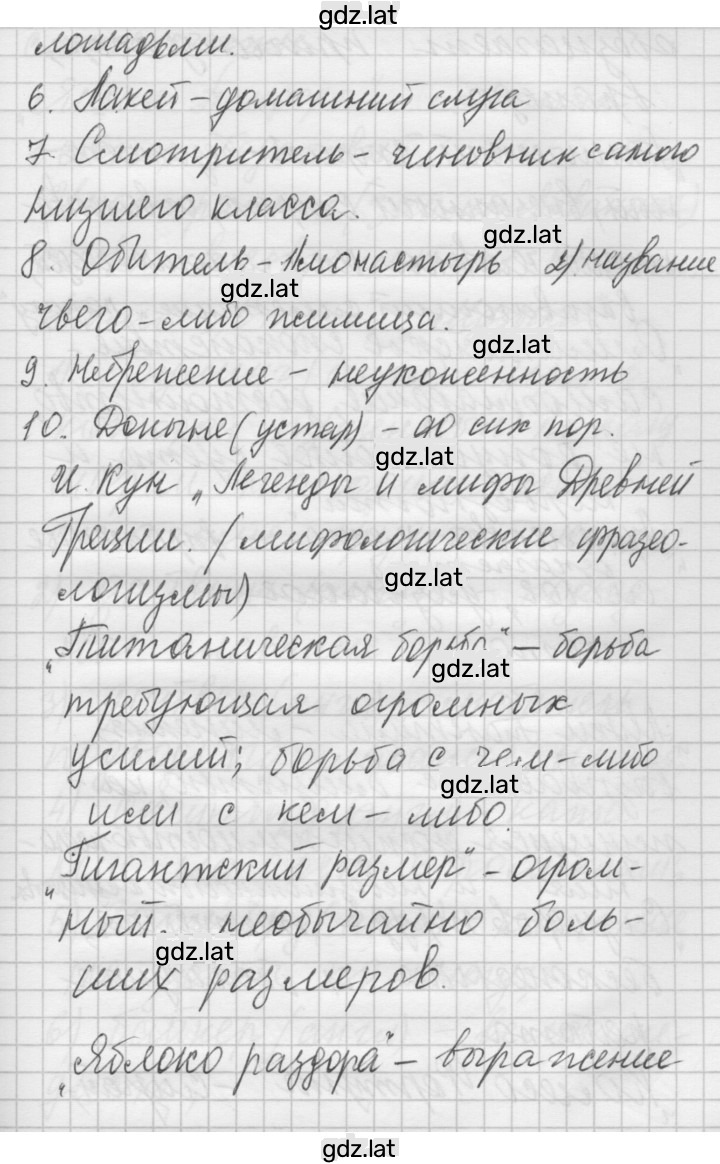 gdz.lat
лошадьми.
6. Лакей – домашний слуга
7. Смотритель – чиновник самого
низшего класса.
gdz.lat
8. Обитель – 1) монастырь 2) название
gdz.lat
чьего-либо жилища.
gdz.lat
9. Небрежение – неухоженность
10. Доныне (устар) – до сих пор.
gdz.lat
И. Кун „Легенды и мифы Древней
Греции. (мифологические фразео-
gdz.lat
логизмы)
„Титаническая борьба" – борьба
gdz.lat
требующая огромных
усилий; борьба с чем-либо
gdz.lat
или с кем-либо.
„Гигантский размер" – огром-
ный. необычайно боль-
gdz.lat
ших размеров.
„Яблоко раздора" – выражение
gdz.lat